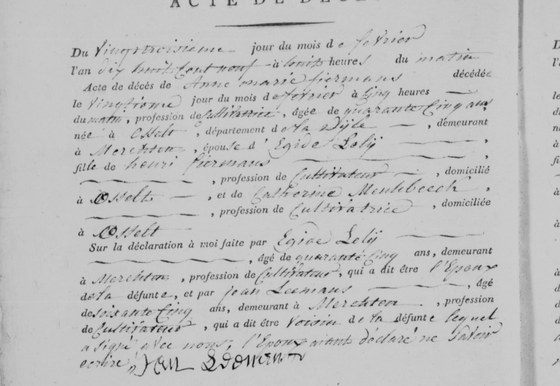 ACTE DE DÉCÈS
Du vingttroisieme jour du mois de fevrier
l'an dix huit Cent neuf à huit heures du matin
Acte de décès de Anne marie piermans décédée
le vingtroisie jour du mois de fevrier à Cinq heures
du matin, profession de Cultivatrice, âgée de quarante Cinq ans
née à Osselt, département de la dÿle, demeurant
à Merchten, épouse d'Egide Lelÿ
fille de henri piermans
, profession de Cultivateur, domicilié
à Osselt, et de Catherine Meulebeech,
, profession de Cultivatrice, domiciliée
à Osselt
Sur la déclaration à moi faite par Egide Lelÿ
, âgé de quarante Cinq ans, demeurant
à Merchten, profession de Cultivateur, qui a dit être l'Epoux
de la défunte, et par jean Leemans, âgé
de soixante Cinq ans, demeurant à Merchten, profession
de Cultivateur, qui a dit être Voisin de la défunte lequel
a signé avec nous, l'Epoux aiant déclaré ne savoir
ecrire